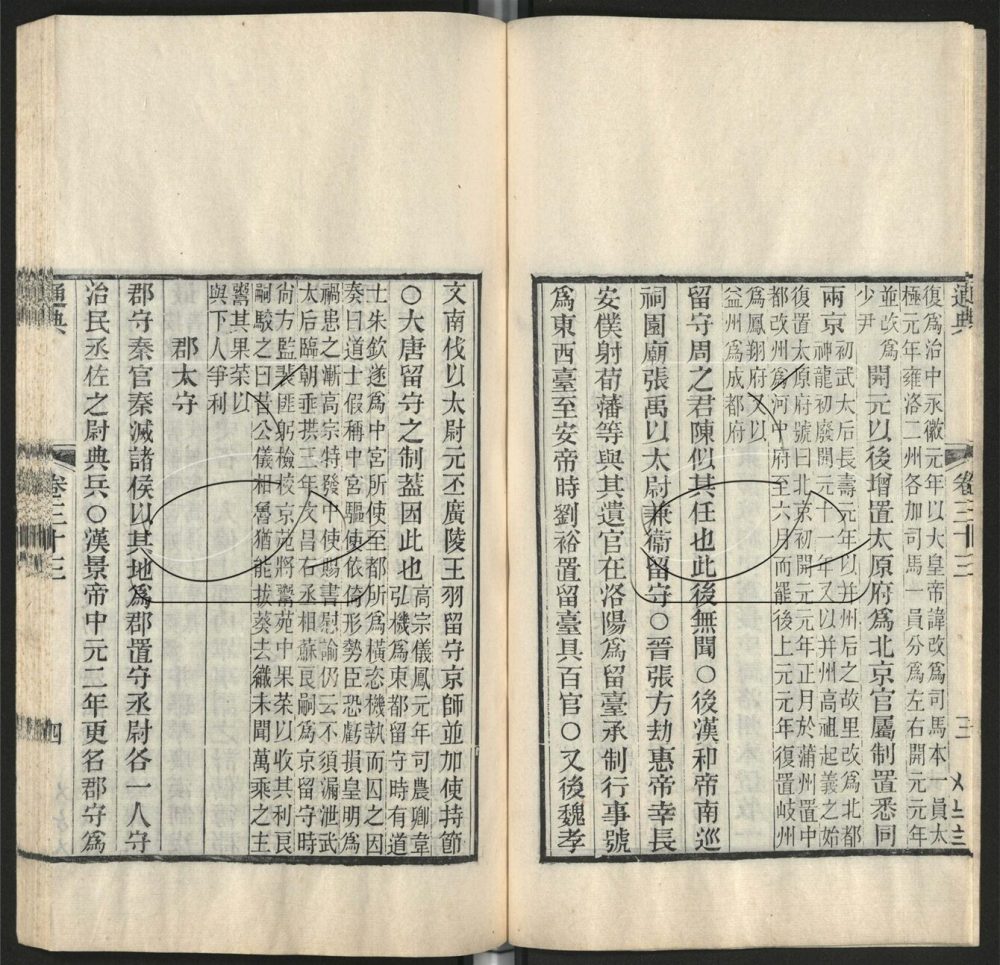 通典
卷三十三
三
復爲治中永徽元年以大皇帝諱改爲司馬本一員太
極元年雍洛二州各加司馬一員分爲左右開元元年
並改爲
少尹
開元以後增置太原府爲北京官屬制置悉同
兩京
初武太后長壽元年以并州后之故里改爲北都
神龍初廢開元十一年又以并州高祖起義之始
復置太原府號曰北京初開元元年正月於蒲州置中
都改州爲河中府至六月而罷後上元元年復置岐州
爲鳳翔府又以
益州爲成都府
留守周之君陳似其任也此後無聞〇後漢和帝南巡
祠園廟張禹以太尉兼衞留守〇晉張方劫惠帝幸長
安僕射荀藩等與其遺官在洛陽爲留臺承制行事號
爲東西臺至安帝時劉裕置留臺具百官〇又後魏孝
文南伐以太尉元丕廣陵王羽留守京師並加使持節
〇大唐留守之制蓋因此也
高宗儀鳳元年司農卿韋
弘機爲東都留守時有道
士朱欽遂爲中宮所使至都所爲橫恣機執而囚之因
奏曰道士假稱中宮驅使依倚形勢臣恐虧損皇明爲
禍患之漸高宗特發中使賜書慰諭仍云不須漏泄武
太后臨朝垂拱三年文昌右丞相蘇良嗣爲京留守時
尙方監裴匪躬檢校京苑將鬻苑中果菜以收其利良
嗣駮之曰昔公儀相魯猶能拔葵去織未聞萬乘之主
鬻其果菜以
與下人爭利
郡太守
郡守秦官秦滅諸侯以其地爲郡置守丞尉各一人守
治民丞佐之尉典兵〇漢景帝中元二年更名郡守爲
通典
卷三十三
四